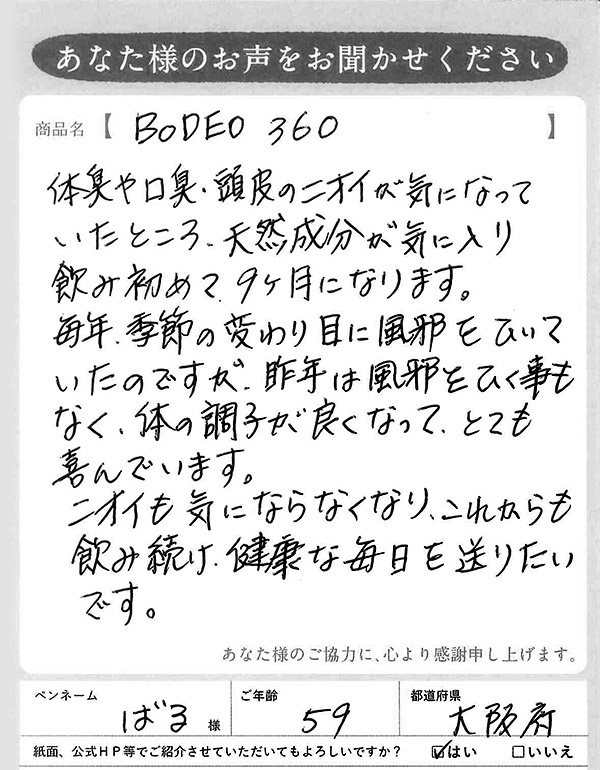 あなた様のお声をお聞かせください
商品名【 BODEO 360 】
体臭や口臭・頭皮のニオイが気になって
いたところ、天然成分が気に入り
飲み初めて、9ヶ月になります。
毎年、季節の変わり目に風邪をひいて
いたのですが、昨年は風邪をひく事も
なく、体の調子が良くなって、とても
喜んでいます。
ニオイも気にならなくなり、これからも
飲み続け、健康な毎日を送りたい
です。
あなた様のご協力に、心より感謝申し上げます。
ペンネーム ご年齢 都道府県
ばる 様 59 大阪府
紙面、公式HP等でご紹介させていただいてもよろしいですか? ☑はい □いいえ